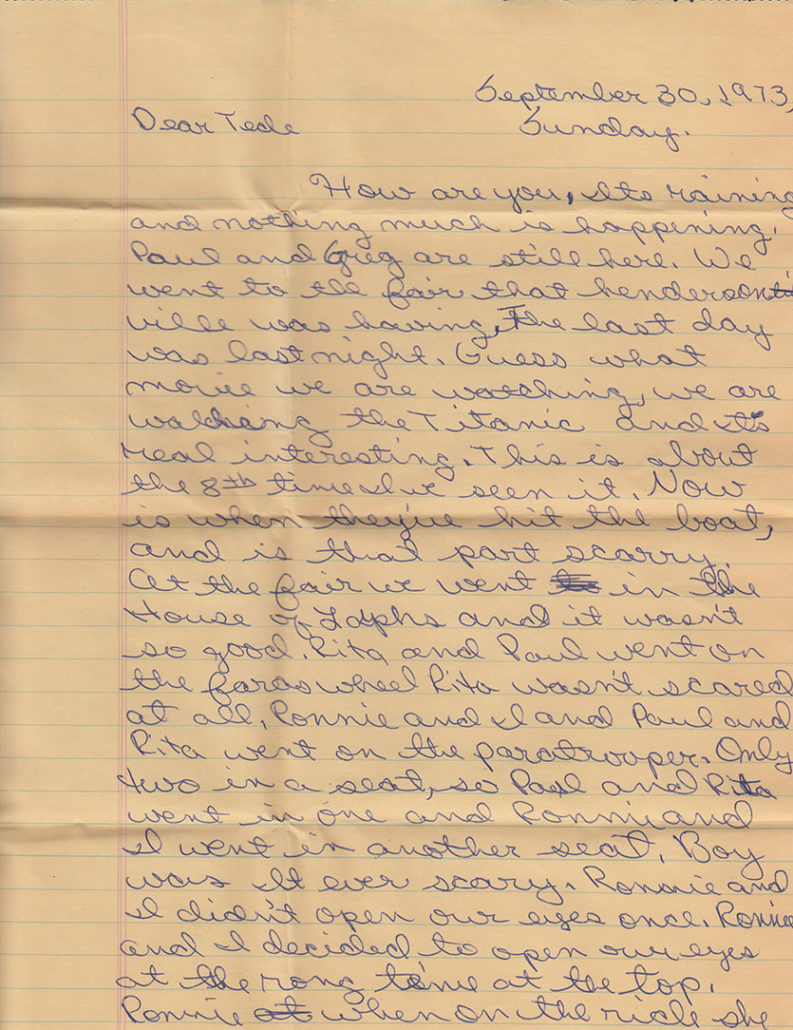 September 30, 1973,
Dear Tede Sunday.
How are you, Its raining
and nothing much is happening.
Paul and Greg are still here. We
went to the fair that henderson
ville was having, The last day
was last night. Guess what
movie we are watching, we are
watching the Titanic and It's
real interesting. This is about
the 8th time I've seen it. Now
is when they've hit the boat,
and is that part scarry.
At the fair we went in the
House of and it wasn't
so good. Rita and Paul went on
the faras wheel Rita wasn't scared
at all, Ronnie and I and Paul and
Rita went on the paratrooper. Only
two in a seat, so Paul and Rita
went in one and Ronnie and
I went in another seat. Boy
was It ever scary. Ronnie and
I didn't open our eyes once. Ronnie
and I decided to open our eyes
at the rong time at the top.
Ronnie when on the ride she